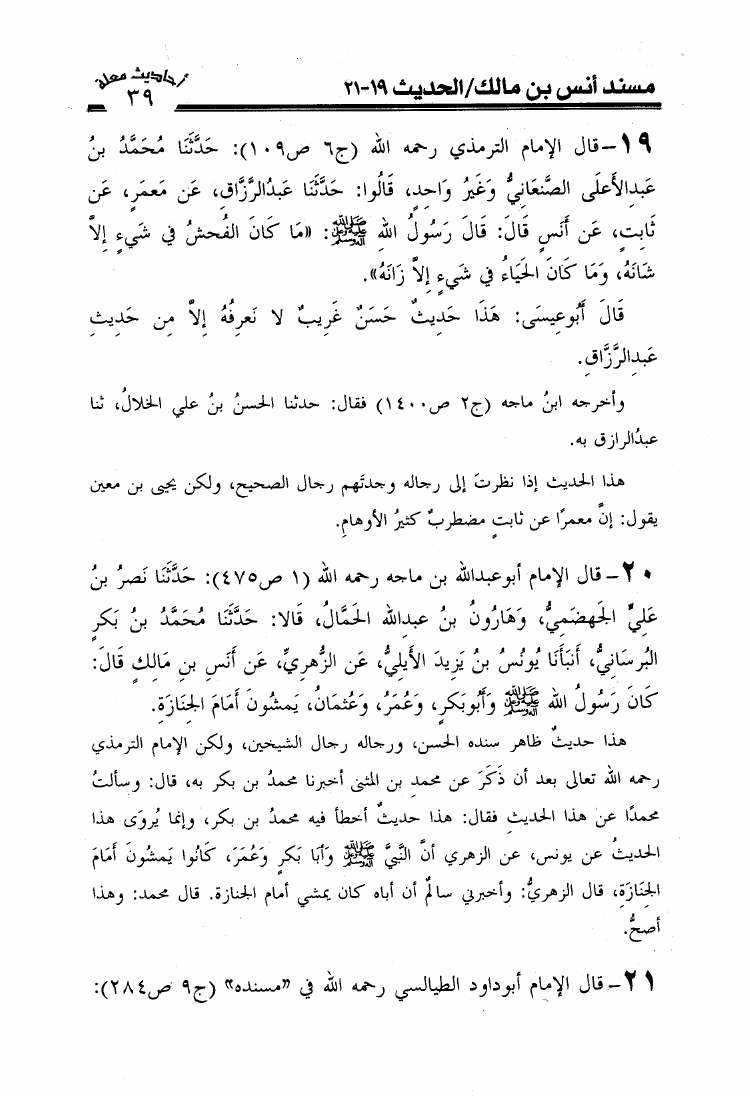 مسند أنس بن مالك/الحديث ١٩-٢١
أحاديث معلة
٣٩
١٩- قال الإمام الترمذي رحمه الله (ج٦ ص١٠٩): حَدَّثَنَا مُحَمَّدُ بنُ
عَبدِالأَعلَى الصَّنعَانِيُّ وَغَيرُ وَاحِدٍ، قَالُوا: حَدَّثَنَا عَبدُالرَّزَّاقِ، عَن مَعمَرٍ، عَن
ثَابِتٍ، عَن أَنَسٍ قَالَ: قَالَ رَسُولُ اللهِ ﷺ: «مَا كَانَ الفُحشُ فِي شَيءٍ إِلاَّ
شَانَهُ، وَمَا كَانَ الحَيَاءُ فِي شَيءٍ إِلاَّ زَانَهُ».
قَالَ أَبُوعِيسَى: هَذَا حَدِيثٌ حَسَنٌ غَرِيبٌ لا نَعرِفُهُ إِلاَّ مِن حَدِيثِ
عَبدِالرَّزَّاقِ.
وأخرجه ابنُ ماجه (ج٢ ص١٤٠٠) فقال: حدثنا الحسنُ بنُ علي الخلالُ، ثنا
عبدُالرازق به.
هذا الحديث إذا نظرتَ إلى رجاله وجدتَهم رجال الصحيح، ولكن يحيى بن معين
يقول: إنَّ معمرًا عن ثابتٍ مضطربٌ كثيرُ الأوهامِ.
٢٠- قال الإمام أبوعبدالله بن ماجه رحمه الله (١ ص٤٧٥): حَدَّثَنَا نَصرُ بنُ
عَلِيٍّ الجَهضَمِيُّ، وَهَارُونُ بنُ عبدِالله الحَمَّالُ، قَالا: حَدَّثَنَا مُحَمَّدُ بنُ بَكرٍ
البُرسَانِيُّ، أَنبَأَنَا يُونُسُ بنُ يَزِيدَ الأَيلِيُّ، عَن الزُّهرِيِّ، عَن أَنَسِ بنِ مَالِكٍ قَالَ:
كَانَ رَسُولُ اللهِ ﷺ وَأَبُوبَكرٍ، وَعُمَرُ، وَعُثمَانُ، يَمشُونَ أَمَامَ الجَنَازَةِ.
هذا حديثٌ ظاهر سنده الحسن، ورجاله رجال الشيخين، ولكن الإمام الترمذي
رحمه الله تعالى بعد أن ذَكَرَ عن محمد بن المثنى أخبرنا محمدُ بن بكر به، قال: وسألتُ
محمدًا عن هذا الحديثِ فقال: هذا حديثٌ أخطأ فيه محمدُ بن بكر، وإنما يُروَى هذا
الحديثُ عن يونس، عن الزهري أنَّ النبيَّ ﷺ وَأَبَا بَكرٍ وَعُمَرَ، كَانُوا يَمشُونَ أَمَامَ
الجَنَازَةِ، قال الزهريُّ: وأخبرني سالمٌ أن أباه كان يمشي أمام الجنازة. قال محمد: وهذا
أصحُّ.
٢١- قال الإمام أبوداود الطيالسي رحمه الله في «مسنده» (ج٩ ص٢٨٤):